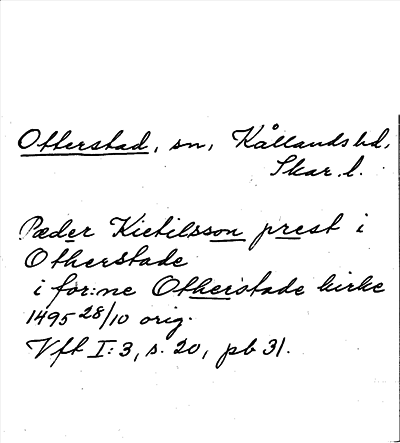 Otterstad, sn, Kållands hd,
Skar. l.
Pæder Kietilsson prest i
Otherstade
i for:ne Otherstade kirke
1495 28/10 orig.
Vft I:3, s. 20, pb 31.